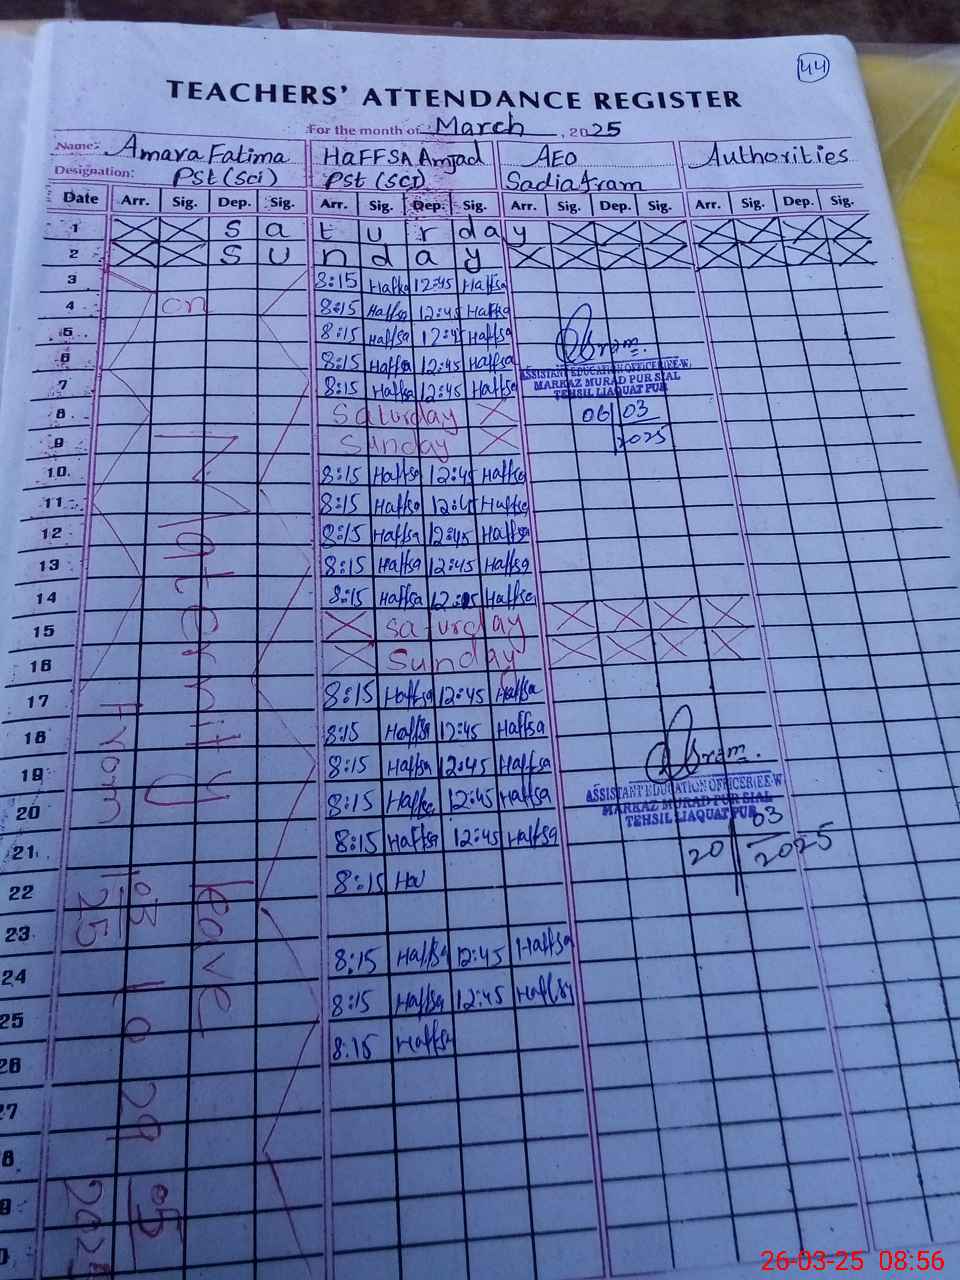 44
TEACHERS' ATTENDANCE REGISTER
For the month of March, 2025
Name: Amara Fatima HaFFSA Amjad AEO Authorities
Designation: PSt (Sci) PSt (SCI) Sadia Akram
Date Arr. Sig. Dep. Sig. Arr. Sig. Dep. Sig. Arr. Sig. Dep. Sig. Arr. Sig. Dep. Sig.
1 Saturday
2 Sunday
3 8:15 Haffsa 12:45 Haffsa
4 8:15 Haffsa 12:45 Haffsa
5 8:15 Haffsa 12:45 Haffsa
6 8:15 Haffsa 12:45 Haffsa
7 8:15 Haffsa 12:45 Haffsa
8 Saturday
9 Sunday
10 8:15 Haffsa 12:45 Haffsa
11 8:15 Haffsa 12:45 Haffsa
12 8:15 Haffsa 12:45 Haffsa
13 8:15 Haffsa 12:45 Haffsa
14 8:15 Haffsa 12:45 Haffsa
15 Saturday
16 Sunday
17 8:15 Haffsa 12:45 Haffsa
18 8:15 Haffsa 12:45 Haffsa
19 8:15 Haffsa 12:45 Haffsa
20 8:15 Haffsa 12:45 Haffsa
21 8:15 Haffsa 12:45 Haffsa
22 8:15
23
24 8:15 Haffsa 12:45 Haffsa
25 8:15 Haffsa 12:45
26 8:15 Haffsa
27
8
9
on
Maternity leave
From
03
25
to 29
05
ASSISTANT EDUCATION OFFICER (EE-W)
MARKAZ MURAD PUR SIAL
TEHSIL LIAQUAT PUR
06/03
2025
ASSISTANT EDUCATION OFFICER (EE-W)
MARKAZ MURAD PUR SIAL
TEHSIL LIAQUAT PUR
20/03
2025
26-03-25 08:56